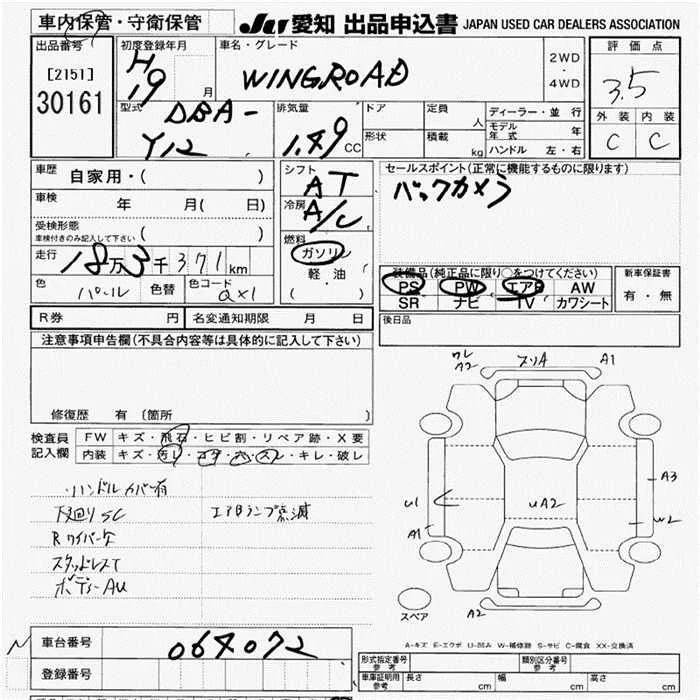 車内保管・守衛保管
JU 愛知 出品申込書 JAPAN USED CAR DEALERS ASSOCIATION
出品番号
[2151]
30161
初度登録年月
H
19
月
車名・グレード
WINGROAD
2WD
・
4WD
評価点
3.5
外装 内装
C C
型式
DBA-
Y12
排気量
1.49 CC
ドア
形状
定員 人
積載 kg
ディーラー・並行
モデル年式 年
ハンドル 左・右
車歴
自家用・( )
車検 年 月( 日)
受検形態
車検付きのみ記入して下さい ( )
走行
18万3千371km
色
パール
色替
色コード
QX1
シフト
AT
冷房
A/C
燃料
ガソリン
軽油
( )
セールスポイント(正常に機能するものに限ります)
バックカメラ
装備品(純正品に限り○をつけてください)
PS PW エアB AW
SR ナビ TV カワシート
新車保証書
有・無
R券 円 名変通知期限 月 日
後日品
注意事項申告欄(不具合内容等は具体的に記入して下さい)
修復歴 有 〔箇所 〕
検査員記入欄
FW キズ・飛石・ヒビ割・リペア跡・X要
内装 キズ・汚レ・コゲ・穴・スレ・キレ・破レ
・ハンドルカバー有
下廻りSC エアBランプ点滅
Rワイパーケ
スタッドレスT
ボディーAU
ワレ
A2
スリA
A1
A3
U1
UA2
W2
A1
A2
スペア
A-キズ E-エクボ U-凹み W-補修跡 S-サビ C-腐食 XX-交換済
N
車台番号 064072
登録番号
形式指定番号 参考
類別区分番号 参考
車庫証明用 参考 長さ cm 幅 cm 高さ cm